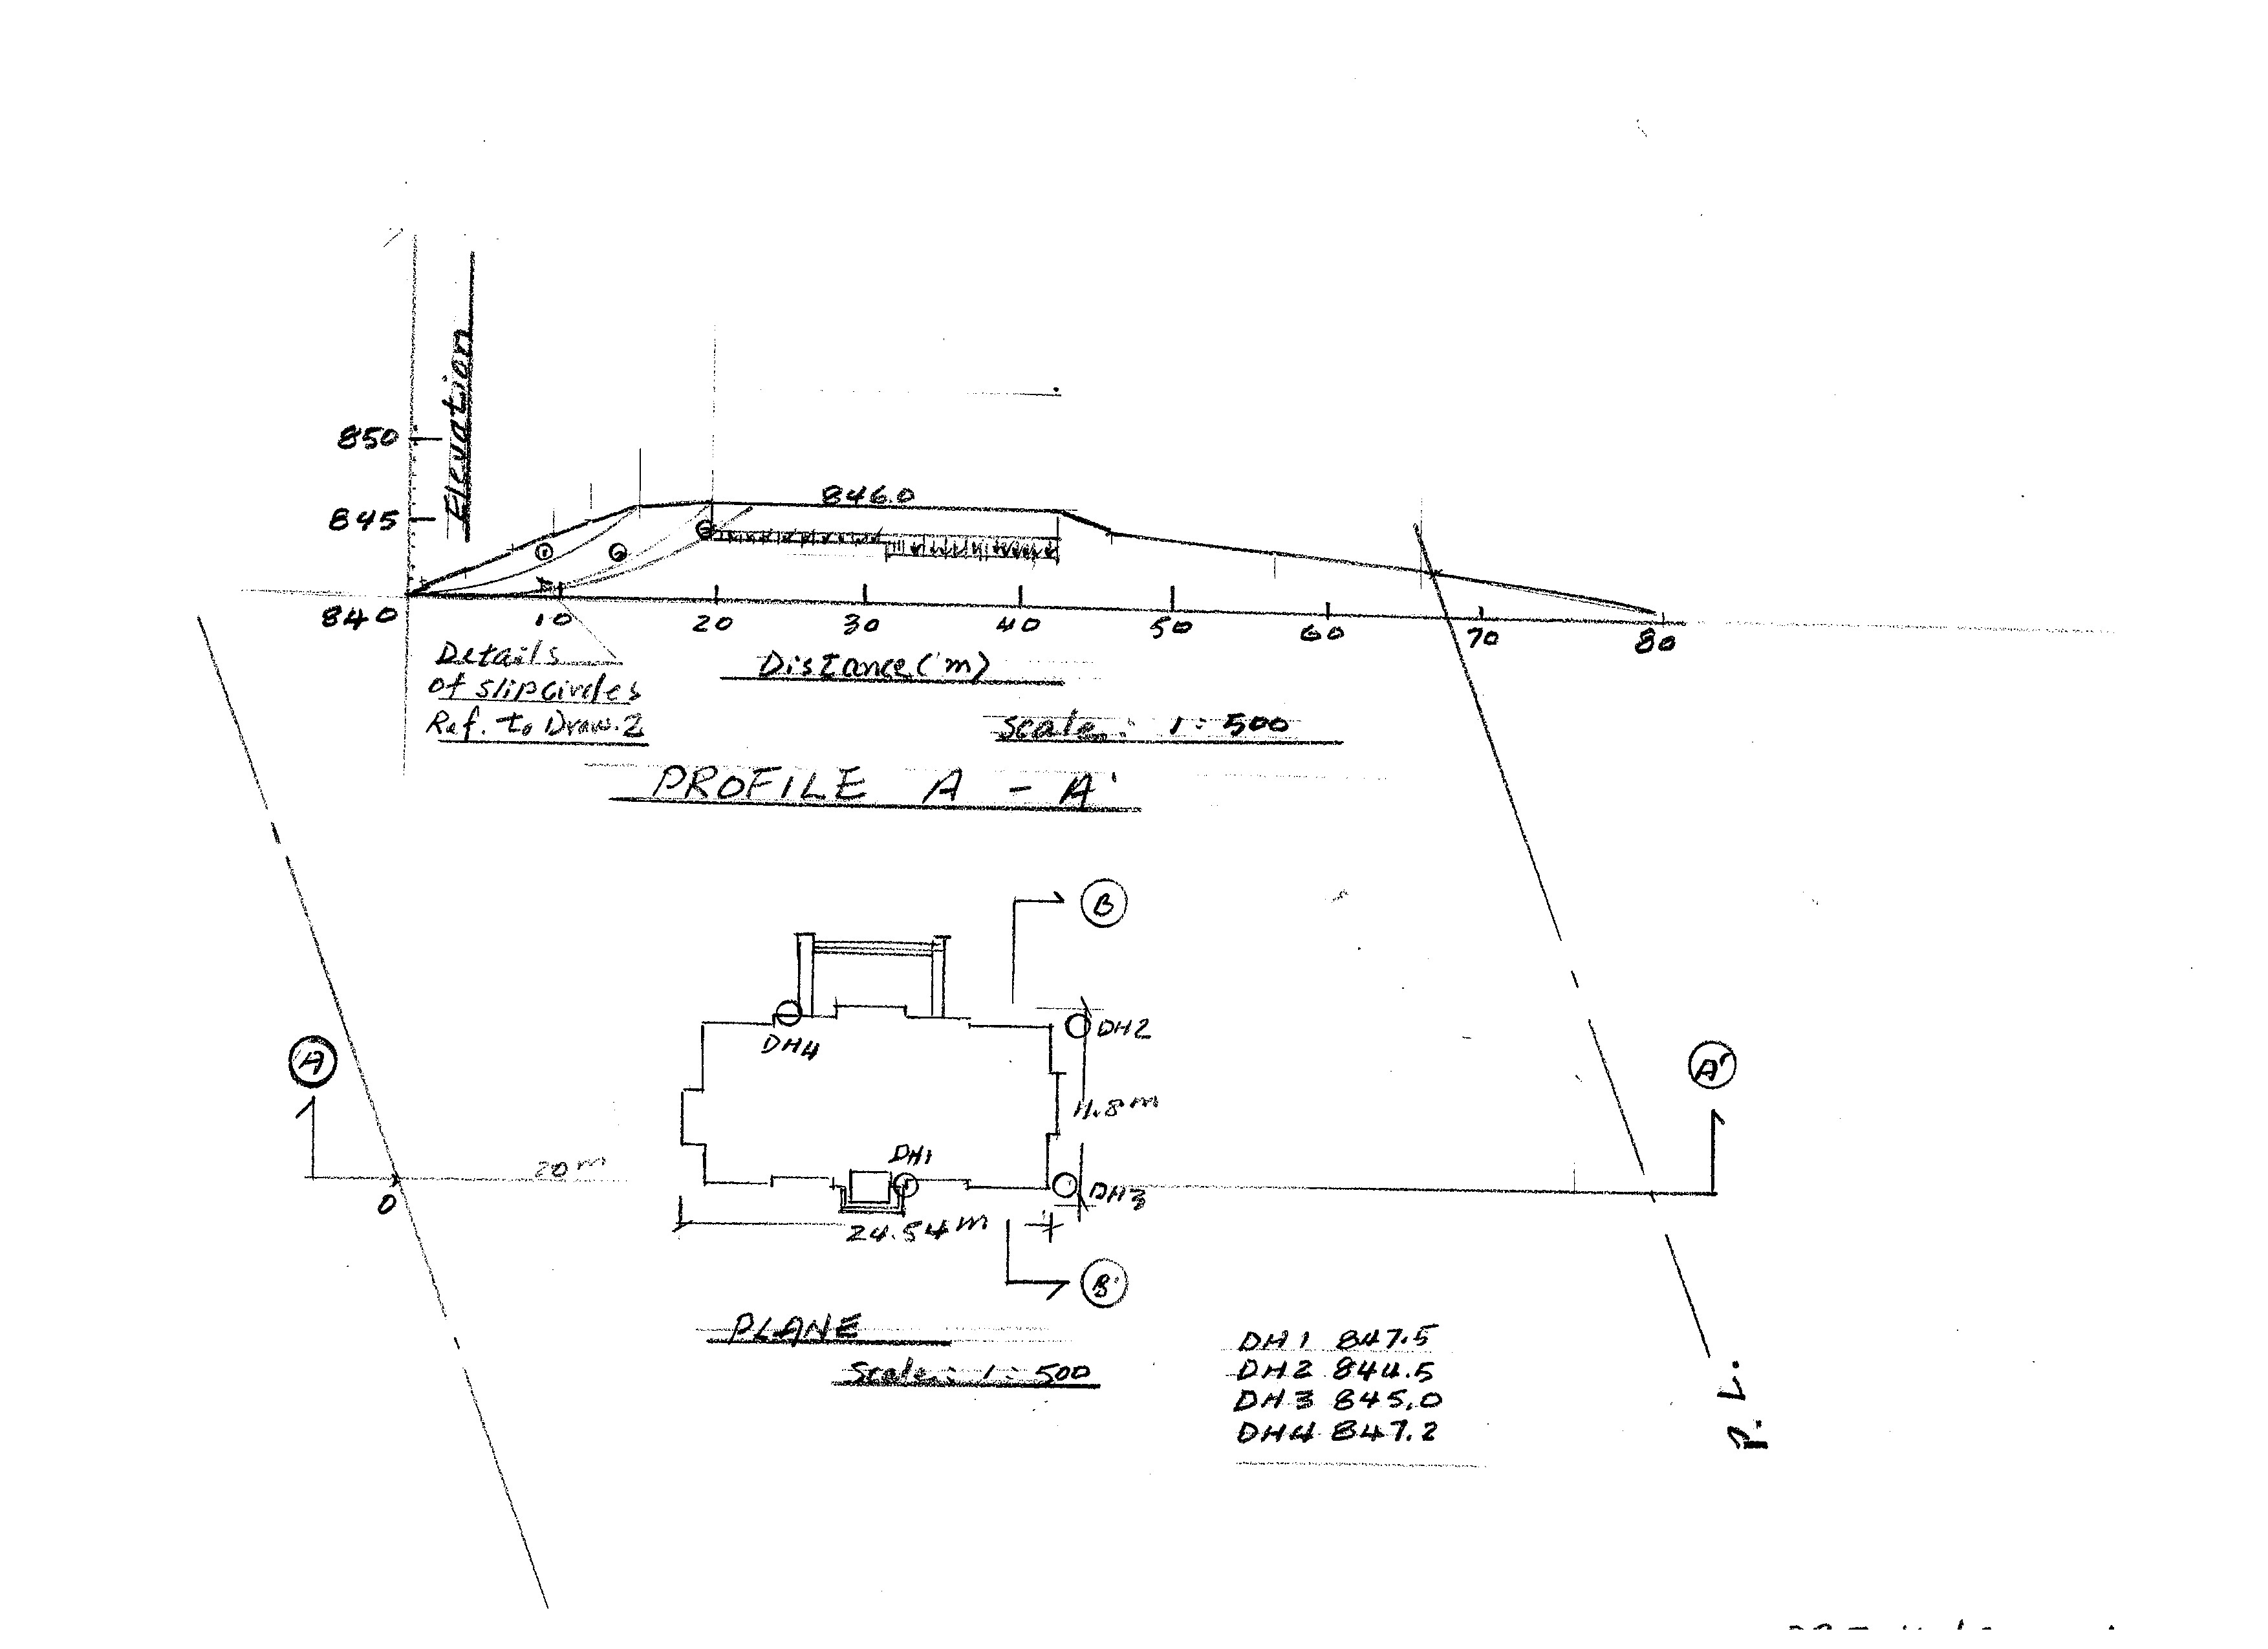 Elevation
850
845
840
846.0
1
2
3
10 20 30 40 50 60 70 80
Details
of slipcircles
Ref. to Draw. 2
Distance (m)
Scale: 1:500
PROFILE A - A'
B
DH4
DH2
A
A'
11.8 m
20 m
DH1
O
DH3
24.54 m
B'
PLANE
Scale: 1:500
DH1 847.5
DH2 844.5
DH3 845.0
DH4 847.2
P.L.